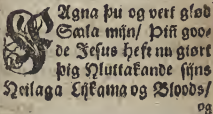 FAgna þu og vert glød
Sæla mijn/ Þijn goo-
de Jesus hefr nu giørt
þig Hluttakande sijns
Heilaga Lijkama og Bloods/
og